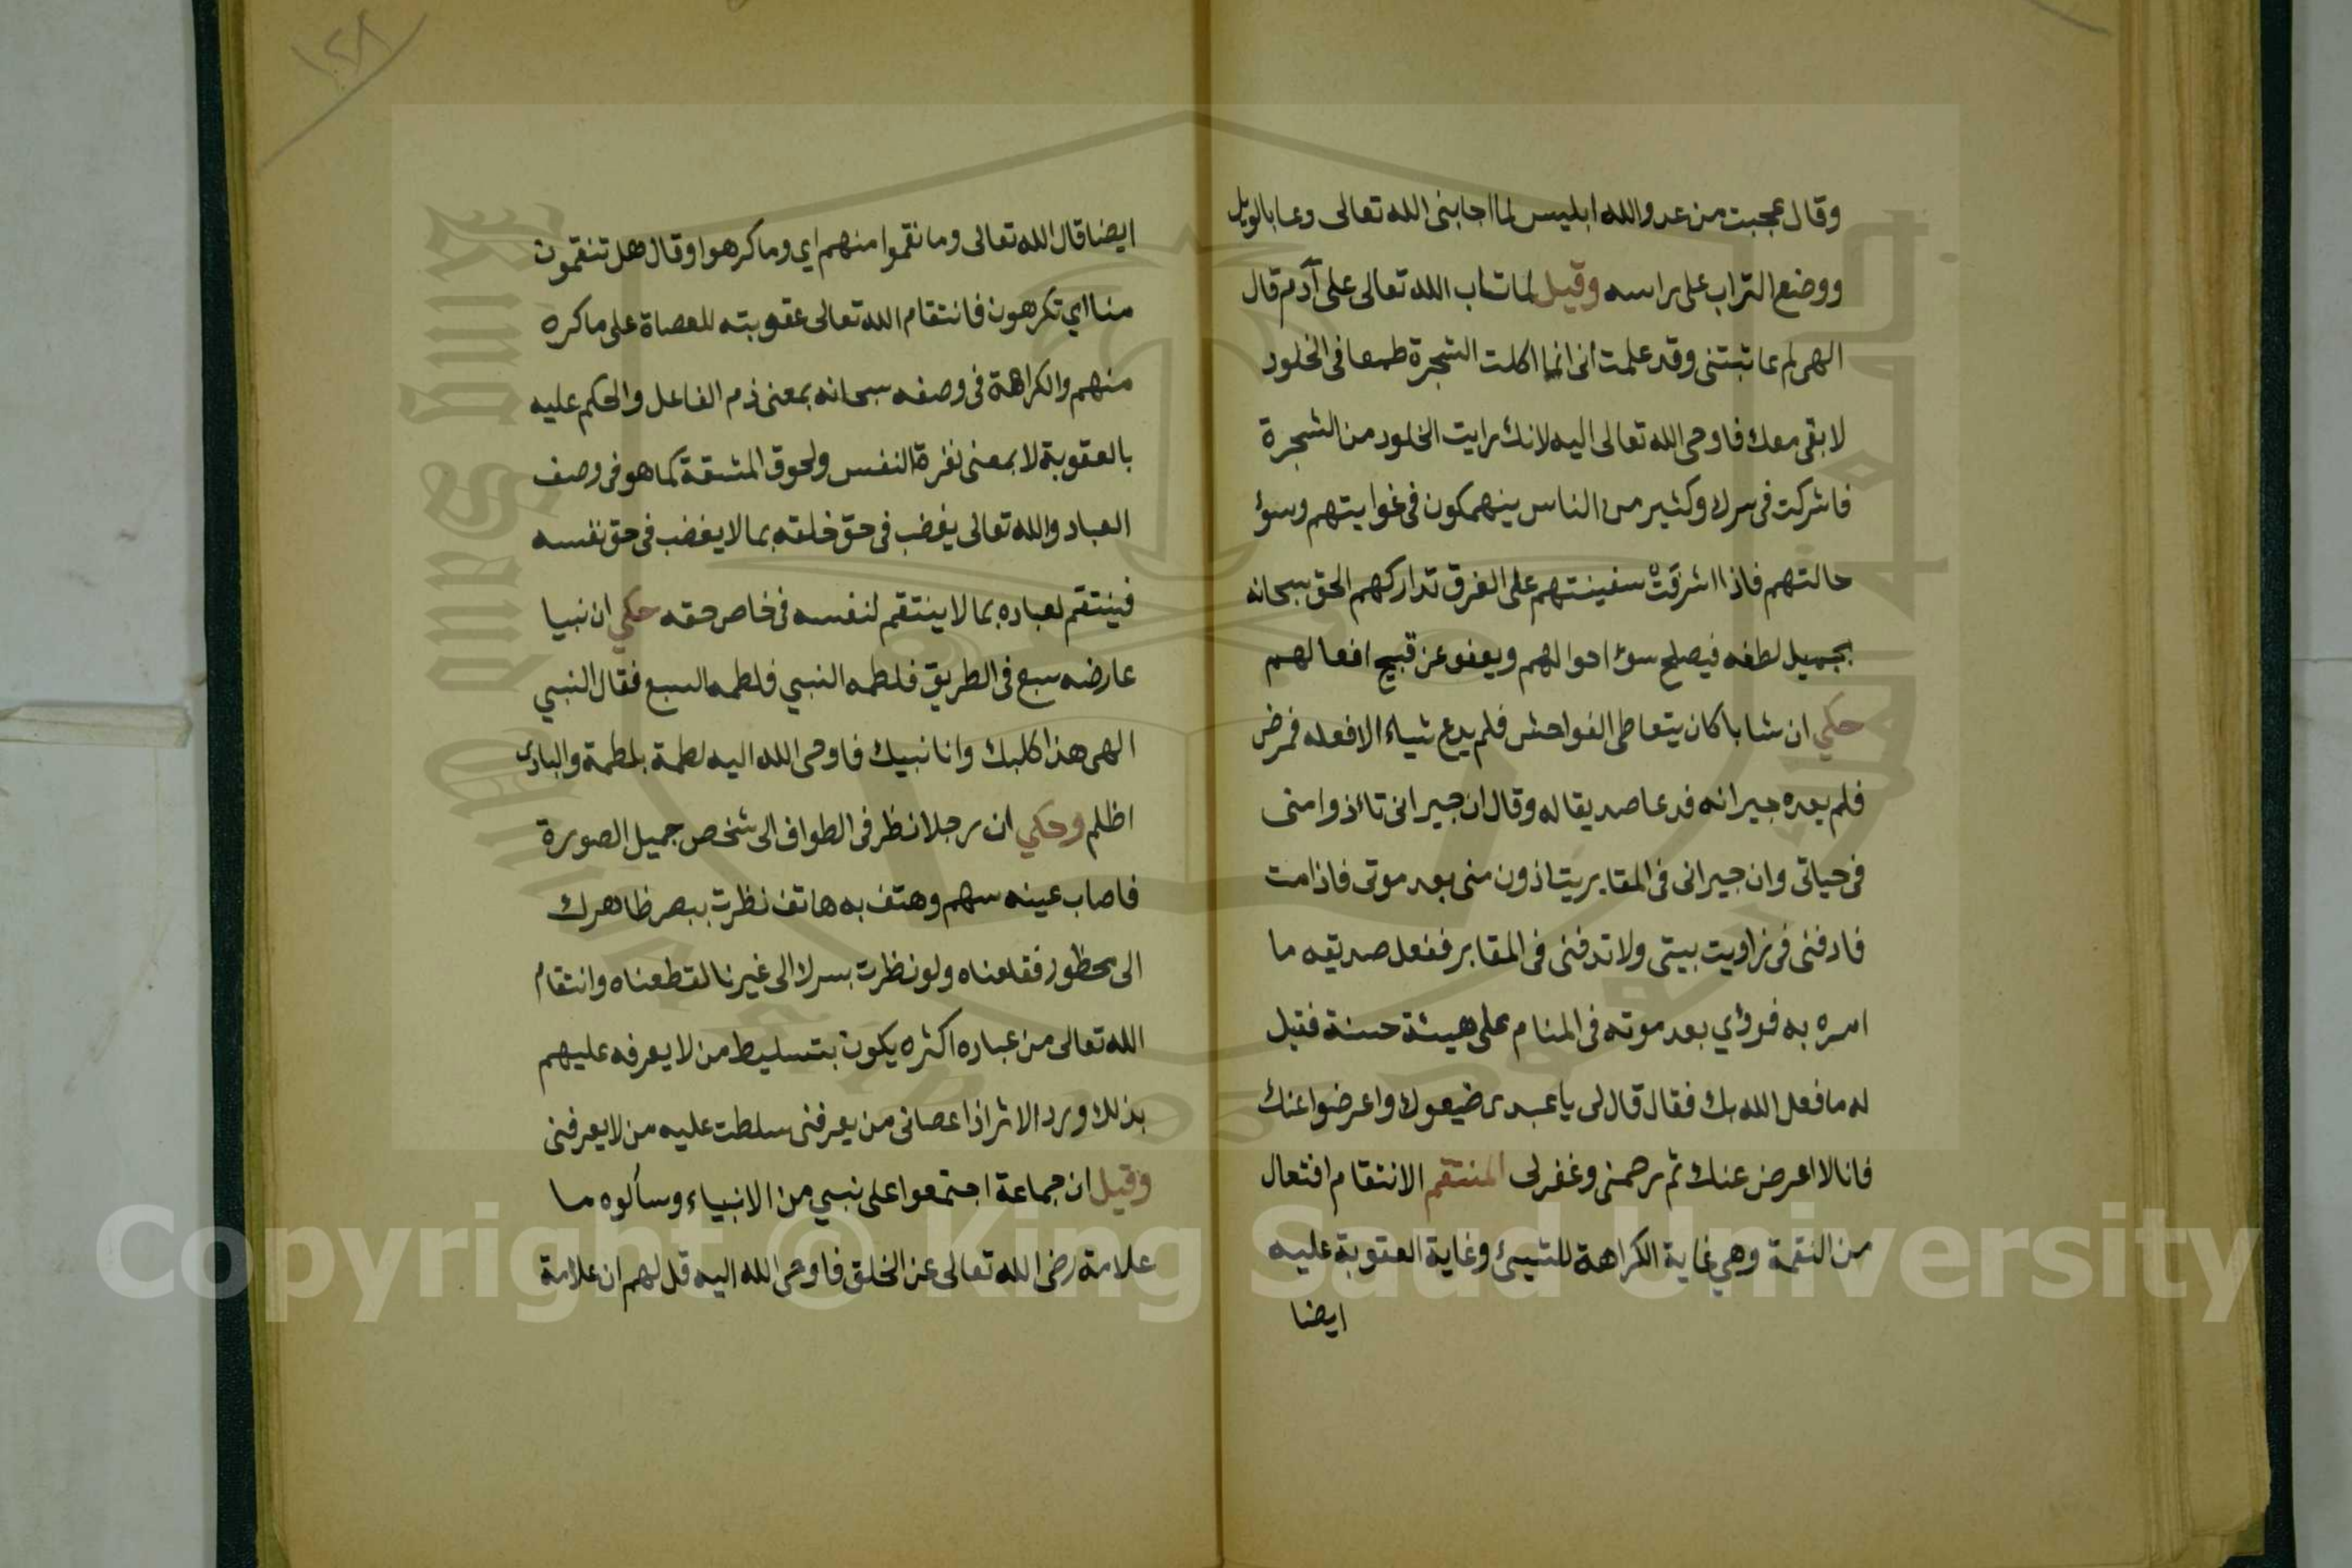 وقال عجبت من عدو الله ابليس لما اجابنى الله تعالى دعا بالويل
ووضع التراب على راسه وقيل لما تاب الله تعالى على آدم قال
الهى لم عاتبتنى وقد علمت أنى انما اكلت الشجرة طمعا فى الخلود
لابقى معك فاوحى الله تعالى اليه لانك رايت الخلود من الشجرة
فاشركت فى سرك وكثير من الناس ينهمكون فى غوايتهم وسؤ
حالتهم فاذا اشرقت سفينتهم على الغرق تداركهم الحق سبحانه
بجميل لطفه فيصلح سؤ احوالهم ويعفو عن قبيح افعالهم
حكي ان شابا كان يتعاطى الفواحش فلم يدع شياء الا فعله فمرض
فلم يعده جيرانه فدعا صديقا له وقال ان جيرانى تاءذوا منى
فى حياتى وان جيرانى فى المقابر يتاذون منى بعد موتى فاذا مت
فادفنى فى زاويت بيتى ولا تدفنى فى المقابر ففعل صديقه ما
امره به فرؤي بعد موته فى المنام على هيئة حسنة فقيل
له ما فعل الله بك فقال قال لى يا عبدى ضيعوك واعرضوا عنك
فانا لا اعرض عنك ثم رحمنى وغفر لى المنتقم الانتقام افتعال
من النقمة وهي غاية الكراهة للشيئ وغاية العقوبة عليه
ايضا
١٢٨
ايضا قال الله تعالى وما نقموا منهم اي وما كرهوا وقال هل تنقمون
منا اي تكرهون فانتقام الله تعالى عقوبته للعصاة على ما كره
منهم والكراهة فى وصفه سبحانه بمعنى ذم الفاعل والحكم عليه
بالعقوبة لا بمعنى نفرة النفس ولحوق المشقة كما هو فى وصف
العباد والله تعالى يغضب فى حق خلقه بما لا يغضب فى حق نفسه
فينتقم لعباده بما لا ينتقم لنفسه فى خاص حقه حكي ان نبيا
عارضه سبع فى الطريق فلطمه النبي فلطمه السبع فقال النبي
الهى هذا كلبك وانا نبيك فاوحى الله اليه لطمة بلطمة والبادى
اظلم وحكي ان رجلا نظر فى الطواف الى شخص جميل الصورة
فاصاب عينه سهم وهتف به هاتف نظرت ببصر ظاهرك
الى محظور فقلعناه ولو نظرت بسرك الى غيرنا لقطعناه وانتقام
الله تعالى من عباده اكثره يكون بتسليط من لا يعرفه عليهم
بذلك ورد الاثر اذا عصانى من يعرفنى سلطت عليه من لا يعرفنى
وقيل ان جماعة اجتمعوا على نبي من الانبياء وسألوه ما
علامة رضى الله تعالى عن الخلق فاوحى الله اليه قل لهم ان علامة
Copyright © King Saud University